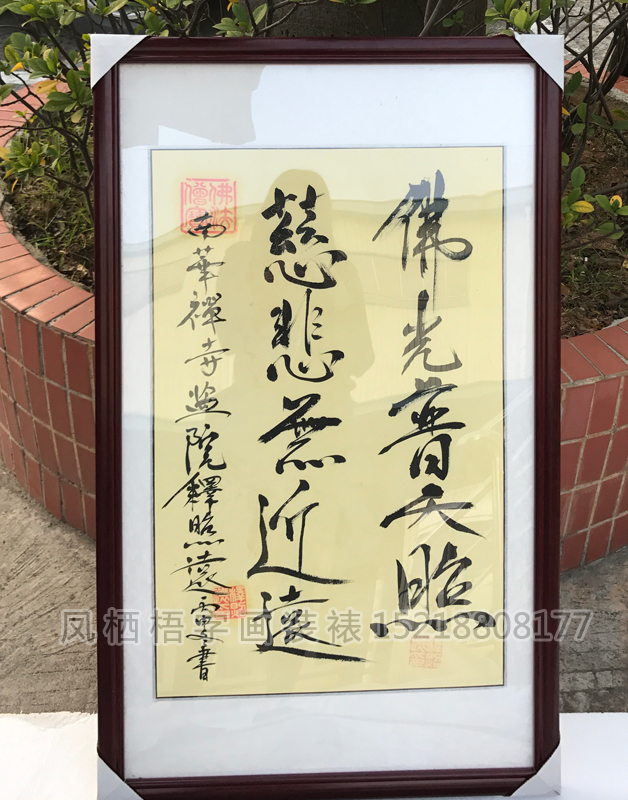 佛光普天照
慈悲無近遠
南華禪寺監院釋照遠書
佛法僧寶
凤栖梧字画装裱 15218808177